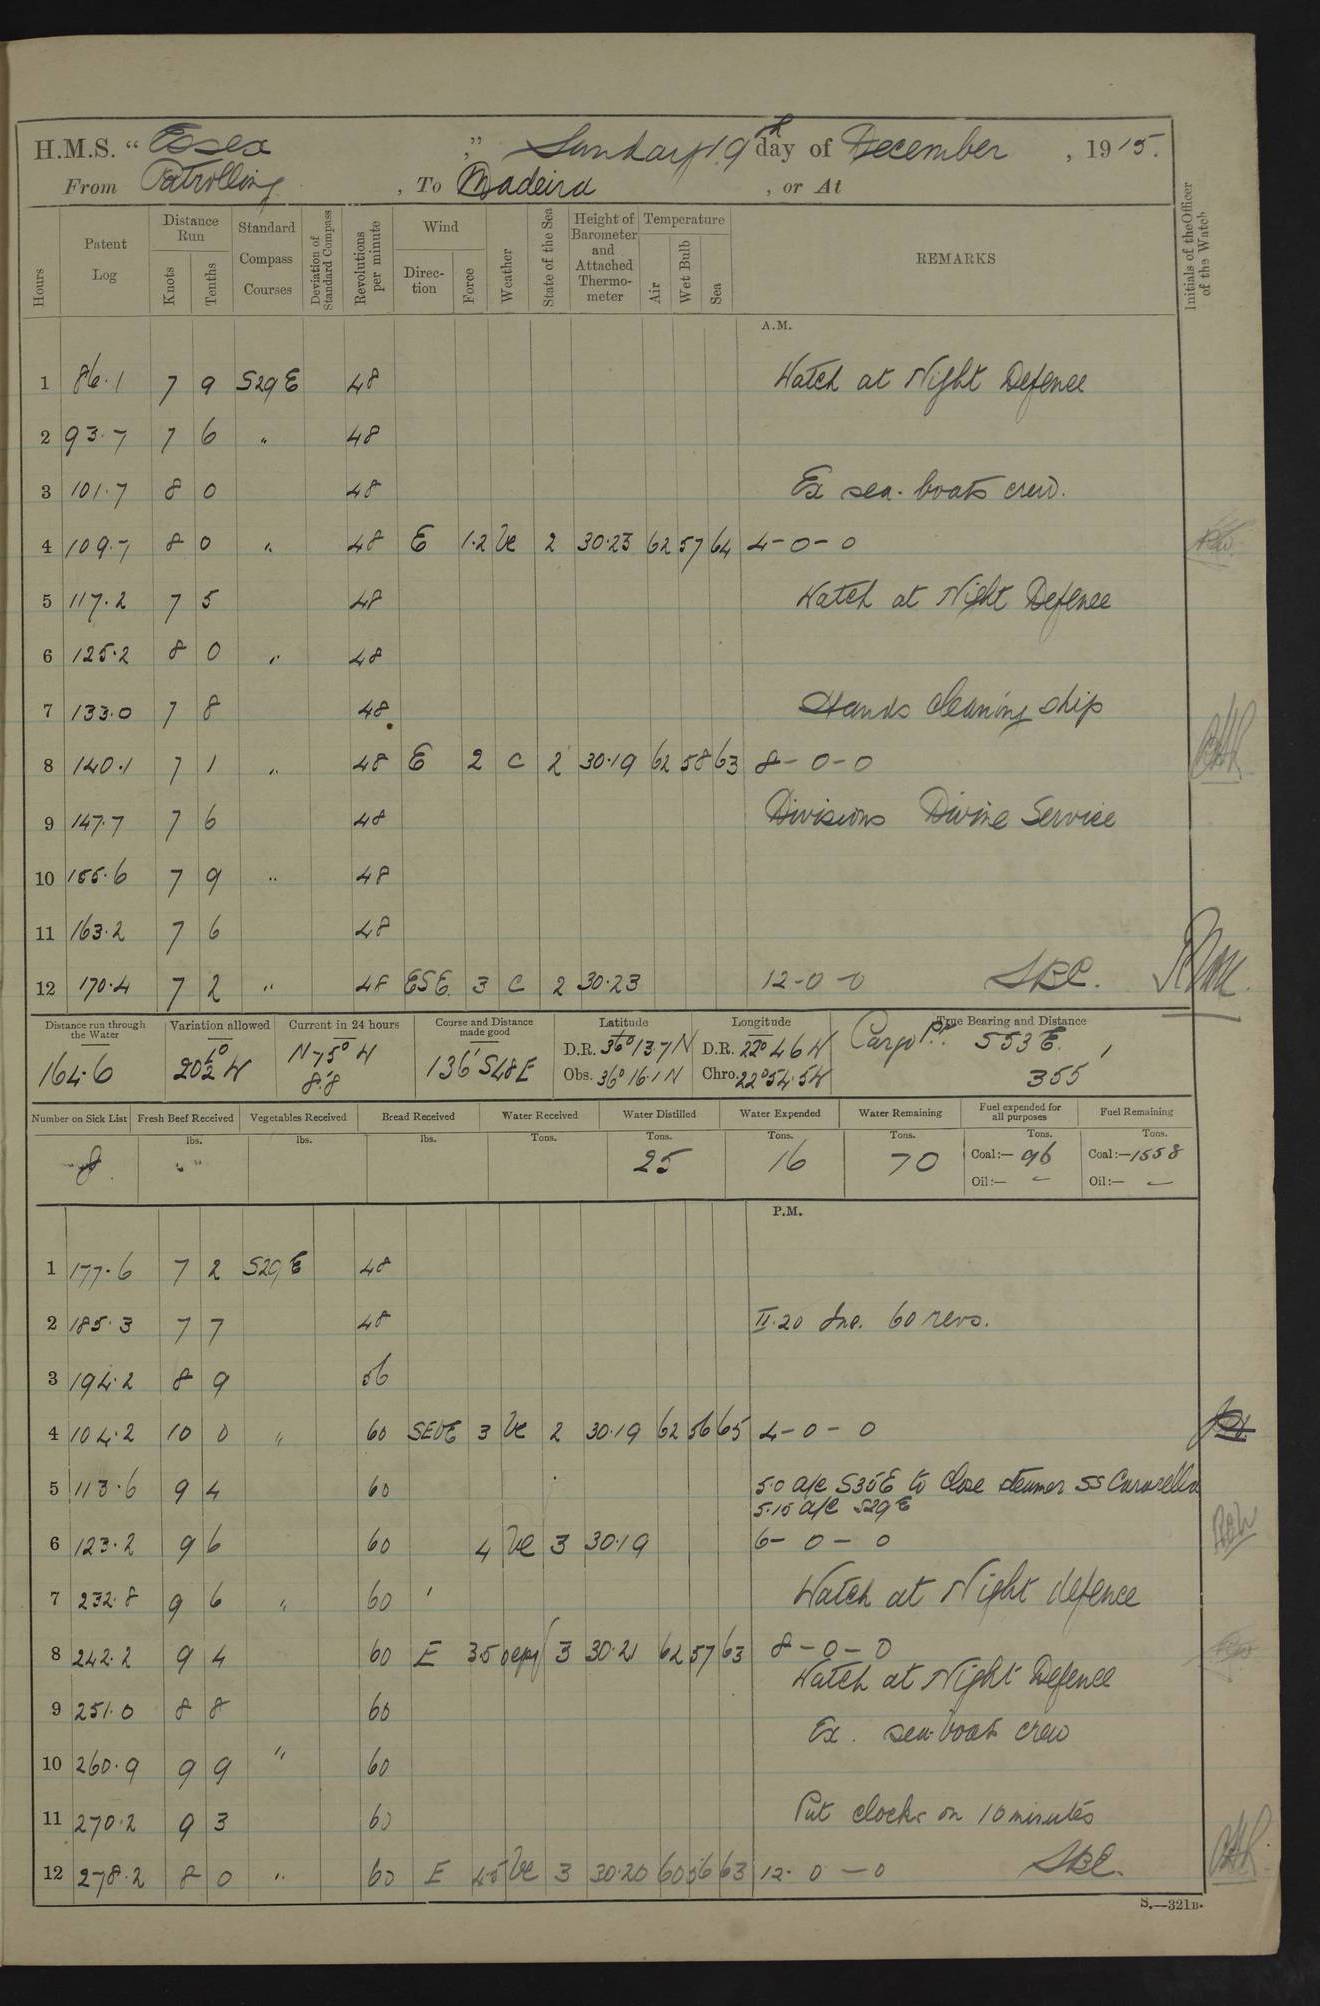 H.M.S. "Essex," Sunday 19th day of December, 1915.
From Patrolling, To Madeira, or At
Hours Patent Log Distance Run Knots Tenths Standard Compass Courses Deviation of Standard Compass Revolutions per minute Wind Direction Force Weather State of the Sea Height of Barometer and Attached Thermometer Temperature Air Wet Bulb Sea REMARKS Initials of the Officer of the Watch
A.M.
1 86.1 7 9 S29E 48 Watch at Night Defence
2 93.7 7 6 " 48
3 101.7 8 0 48 Ex sea-boats crew.
4 109.7 8 0 " 48 E 1.2 bc 2 30.23 62 57 64 4-0-0
5 117.2 7 5 48 Watch at Night Defence
6 125.2 8 0 " 48
7 133.0 7 8 48 Hands cleaning ship
8 140.1 7 1 " 48 E 2 C 2 30.19 62 58 63 8-0-0
9 147.7 7 6 48 Divisions Divine Service
10 155.6 7 9 " 48
11 163.2 7 6 48
12 170.4 7 2 " 48 ESE 3 C 2 30.23 12-0-0 SBC.
Distance run through the Water Variation allowed Current in 24 hours Course and Distance made good Latitude Longitude True Bearing and Distance
164.6 20½° W N75°W 8.8 136' S48E D.R. 36° 13.7 N D.R. 22° 46 W Cargo Pt. S53E 355'
Obs. 36° 16.1 N Chro. 22° 54.5 W
Number on Sick List Fresh Beef Received Vegetables Received Bread Received Water Received Water Distilled Water Expended Water Remaining Fuel expended for all purposes Fuel Remaining
lbs. lbs. lbs. Tons. Tons. Tons. Tons. Tons. Tons.
8 " " 25 16 70 Coal:— 96 Coal:— 1558
Oil:— – Oil:— –
P.M.
1 177.6 7 2 S29E 48
2 185.3 7 7 48 II.20 Inc. 60 revs.
3 194.2 8 9 56
4 104.2 10 0 " 60 SEbE 3 bc 2 30.19 62 56 65 4-0-0
5 113.6 9 4 60 5.0 a/c S35E to close steamer SS
5.15 a/c S29E
6 123.2 9 6 60 4 bc 3 30.19 6-0-0
7 232.8 9 6 " 60 Watch at Night defence
8 242.2 9 4 60 E 3.5 3 30.21 62 57 63 8-0-0
Watch at Night Defence
9 251.0 8 8 60
Ex. sea-boats crew
10 260.9 9 9 " 60
11 270.2 9 3 60 Put clocks on 10 minutes
12 278.2 8 0 " 60 E 4.5 bc 3 30.20 60 56 63 12-0-0 SBC.
S.—321B.